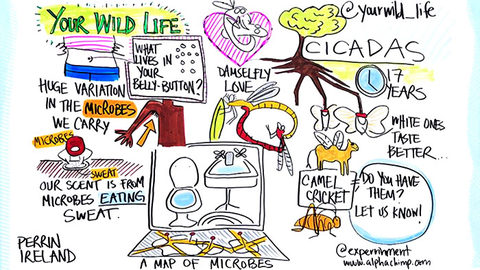 YOUR WILD LIFE
WHAT
LIVES IN
YOUR
BELLY-BUTTON?
HUGE VARIATION
IN THE MICROBES
WE CARRY
MICROBES
SWEAT
OUR SCENT IS FROM
MICROBES EATING
SWEAT.
PERRIN
IRELAND
DAMSELFLY
LOVE
A MAP OF MICROBES
@yourwild_life
CICADAS
17
YEARS
WHITE ONES
TASTE
BETTER...
CAMEL
CRICKET
DO YOU HAVE
THEM?
LET US KNOW!
@experrinment
www.alphachimp.com